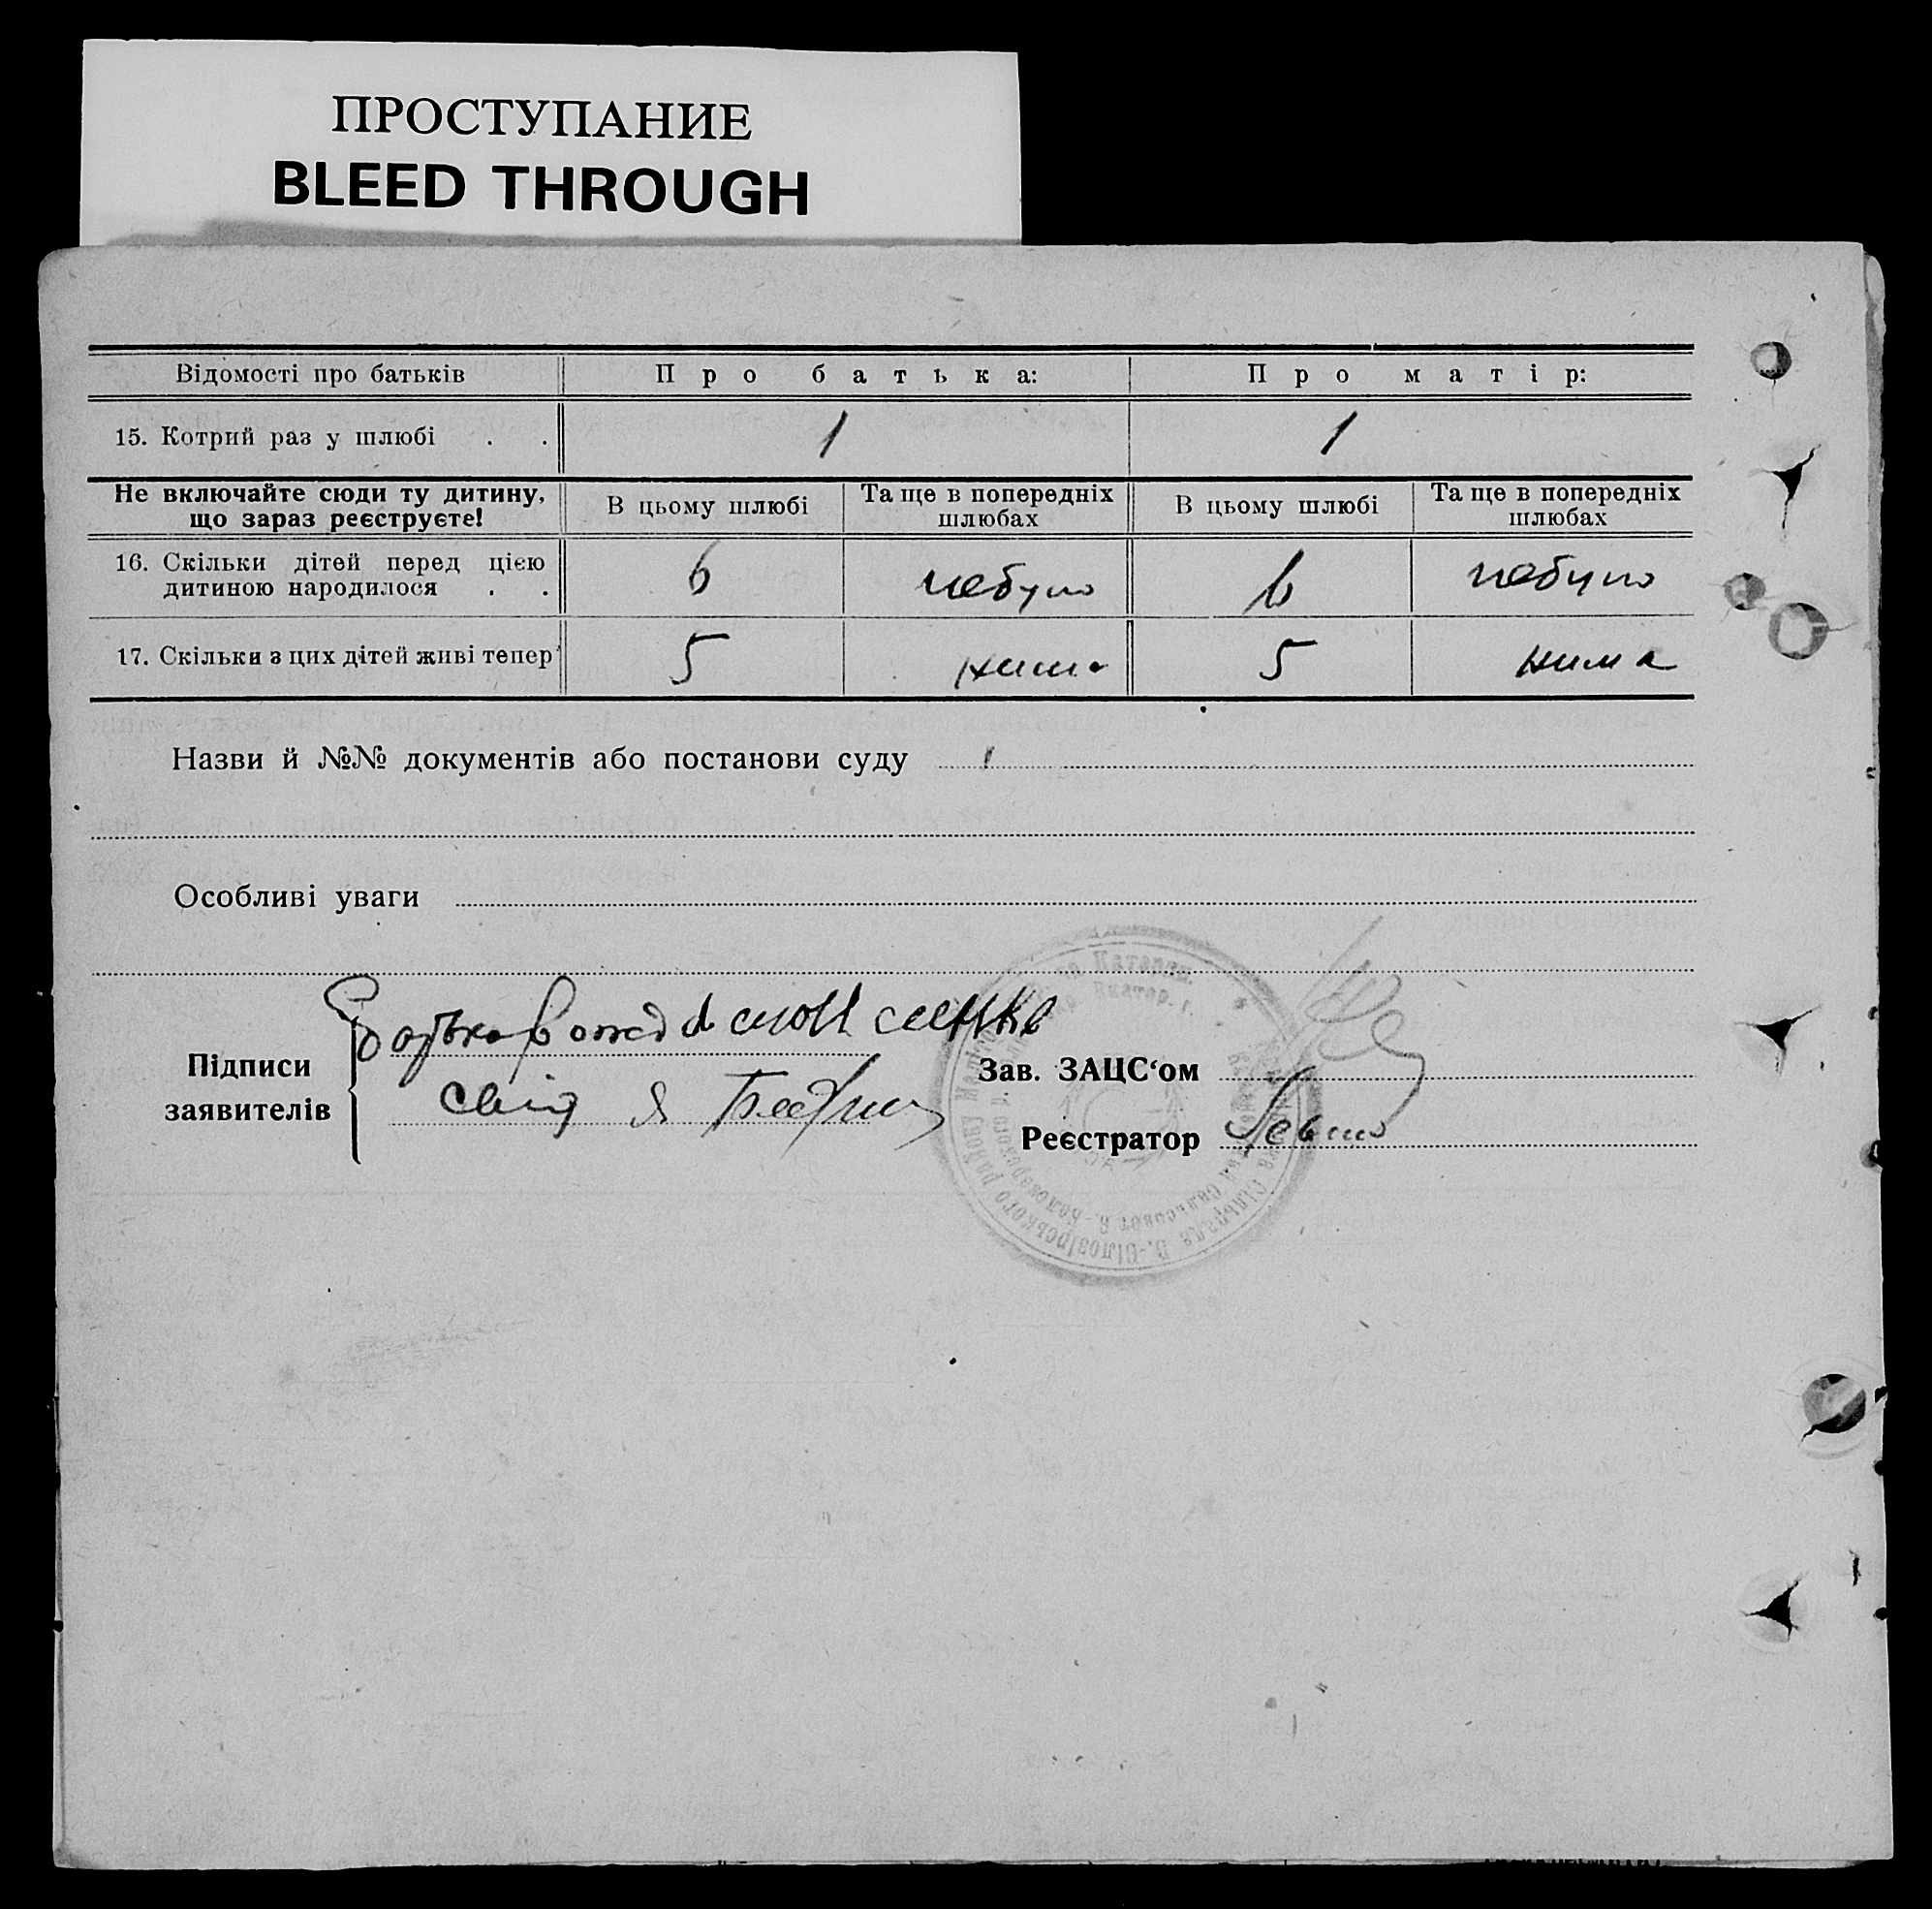 ПРОСТУПАНИЕ
BLEED THROUGH
Відомості про батьків Про батька: Про матір:
15. Котрий раз у шлюбі . . 1 1
Не включайте сюди ту дитину, що зараз реєструєте! В цьому шлюбі Та ще в попередніх шлюбах В цьому шлюбі Та ще в попередніх шлюбах
16. Скільки дітей перед цією дитиною народилося . . 6 небуло 6 небуло
17. Скільки з цих дітей живі тепер 5 нима 5 нима
Назви й №№ документів або постанови суду
Особливі уваги
Підписи заявителів
Зав. ЗАЦС‘ом
Реєстратор